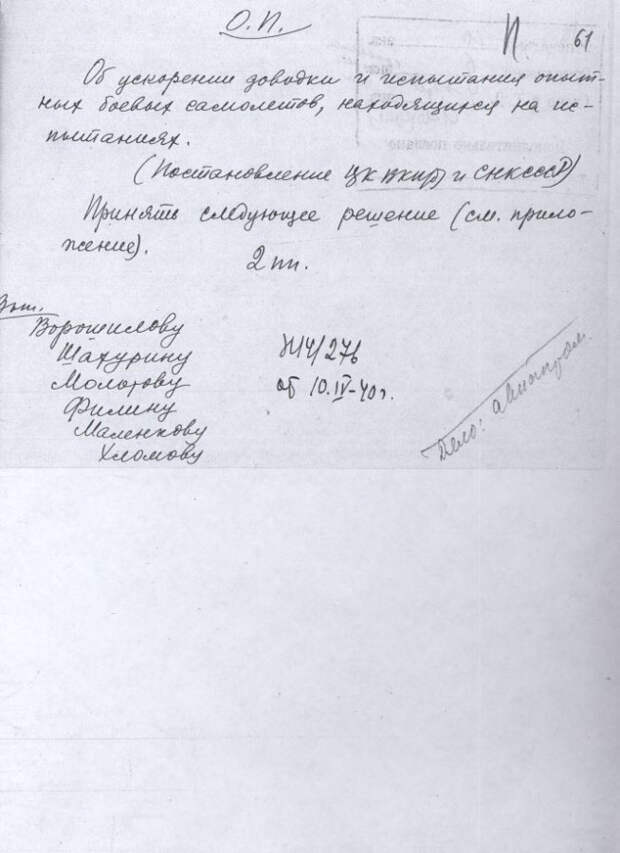 О.П.
П. 61
Об ускорении доводки и испытания опыт-
ных боевых самолетов, находящихся на ис-
пытаниях.
(Постановление ЦК ВКП(б) и СНК СССР)
Принять следующее решение (см. прило-
жение).
2 пп.
Ворошилову
Шахурину
Молотову
Филину
Маленкову
Хломову
П14/276
от 10.IV-40г.
Дело: авиапром.